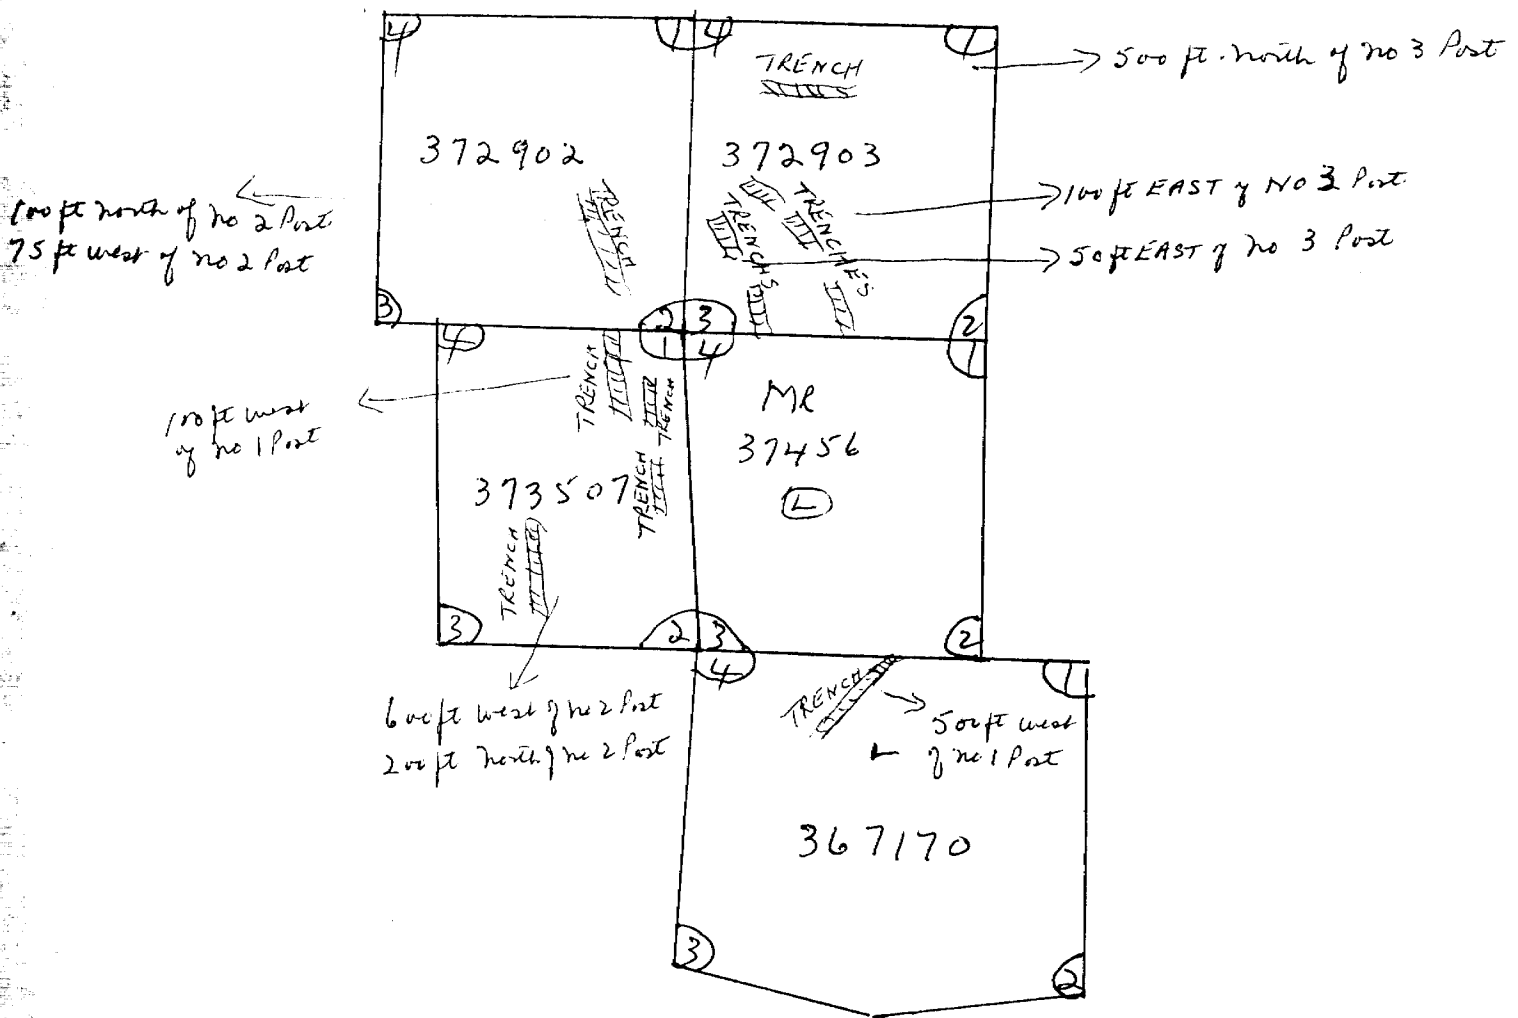 4
1
4
1
TRENCH
500 ft. north of no 3 Post
372902
372903
100 ft north of no 2 Post
75 ft west of no 2 Post
TRENCH
TRENCHS
TRENCHES
100 ft EAST of NO 3 Post
50 ft EAST of no 3 Post
3
2
3
2
4
1
4
1
TRENCH
TRENCH
MR
37456
L
100 ft west
of no 1 Post
373507
TRENCH
TRENCH
3
2
3
2
4
1
600 ft west of no 2 Post
200 ft north of no 2 Post
TRENCH
500 ft west
L of no 1 Post
367170
3
2